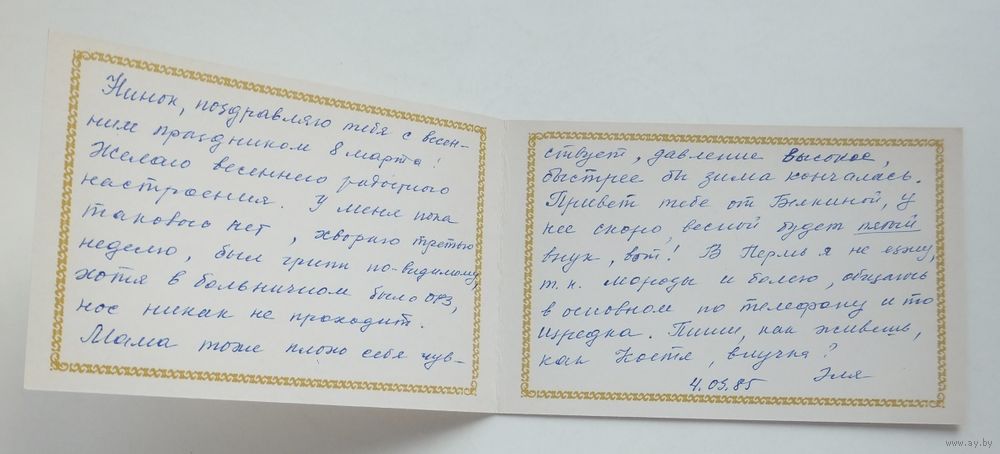 Нинок, поздравляю тебя с весен-
ним праздником 8 марта!
Желаю весеннего радостного
настроения. У меня пока
такового нет, хвораю третью
неделю, был грипп по-видимому,
хотя в больничном было ОРЗ,
нос никак не проходит.
Мама тоже плохо себя чув-
ствует, давление высокое,
быстрее бы зима кончалась.
Привет тебе от Белкиной, у
нее скоро, весной будет пятый
внук, вот! В Пермь я не езжу,
т.к. морозы и болею, общаюсь
в основном по телефону и то
изредка. Пиши, как живешь,
как Костя, внучка?
4.03.85 Эля
www.ay.by